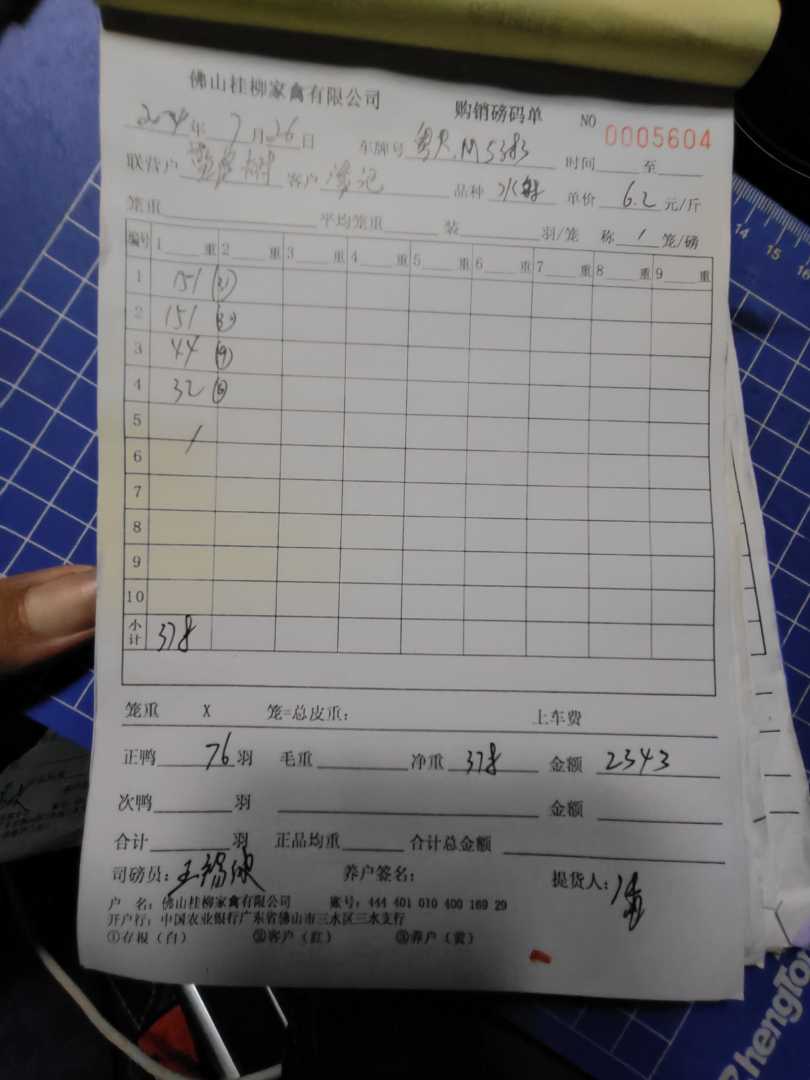 佛山桂柳家禽有限公司 购销磅码单 NO 0005604
2024年7月26日 车牌号 粤R.M5383 时间 至
联营户 客户 品种 水鸭 单价 6.2 元/斤
笼重 平均笼重 装 羽/笼 称 1 笼/磅
编号 1 重 2 重 3 重 4 重 5 重 6 重 7 重 8 重 9 重
1 151 (31)
2 151
3 44 (9)
4 32 (6)
5
6
7
8
9
10
小计 378
笼重 X 笼=总皮重: 上车费
正鸭 76 羽 毛重 净重 378 金额 2343
次鸭 羽 金额
合计 羽 正品均重 合计总金额
司磅员: 养户签名: 提货人:
户 名: 佛山桂柳家禽有限公司 账号: 444 401 010 400 169 29
开户行: 中国农业银行广东省佛山市三水区三水支行
①存根(白) ②客户(红) ③养户(黄)
14 15 16
ZhengTo